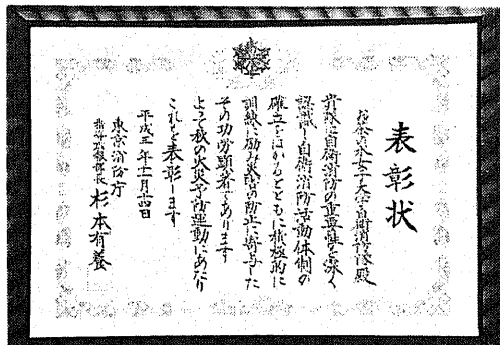 表彰状
お茶の水女子大学自衛消防隊殿
貴隊は自衛消防の重要性を深く
認識し自衛消防活動体制の
確立をはかるとともに積極的に
訓練に励み災害の防止に寄与した
その功労顕著であります
よって秋の火災予防運動にあたり
これを表彰します
平成三年十一月十四日
東京消防庁
杉本有養